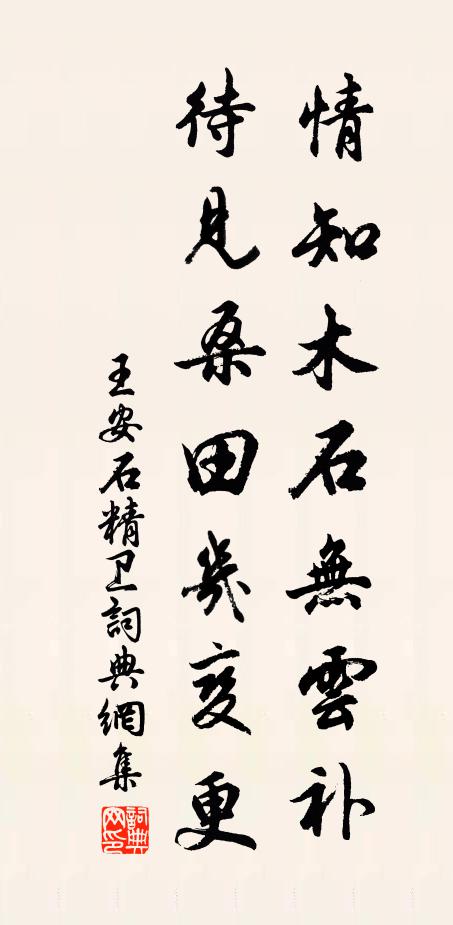 情知木石無雲补
待見桑田幾变更
王安石精卫詞典網集
詞典網印